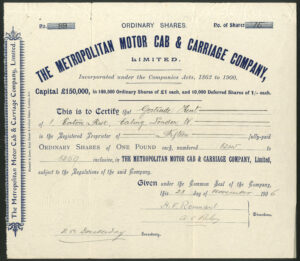 ORDINARY SHARES.
No. 89
No. of Shares 15
THE METROPOLITAN MOTOR CAB & CARRIAGE COMPANY,
LIMITED.
Incorporated under the Companies Acts, 1862 to 1900.
Capital £150,000, in 140,000 Ordinary Shares of £1 each, and 10,000 Deferred Shares of 1/- each.
This is to Certify that Gertrude Hunt
of Road, Ealing London W
is the Registered Proprietor of Fifteen fully-paid
ORDINARY SHARES OF ONE POUND each, numbered
inclusive, in THE METROPOLITAN MOTOR CAB & CARRIAGE COMPANY, Limited,
subject to the Regulations of the said Company.
Given under the Common Seal of the Company,
this 22 day of November 1906
Directors.
Secretary.
The Metropolitan Motor Cab & Carriage Company, Limited.